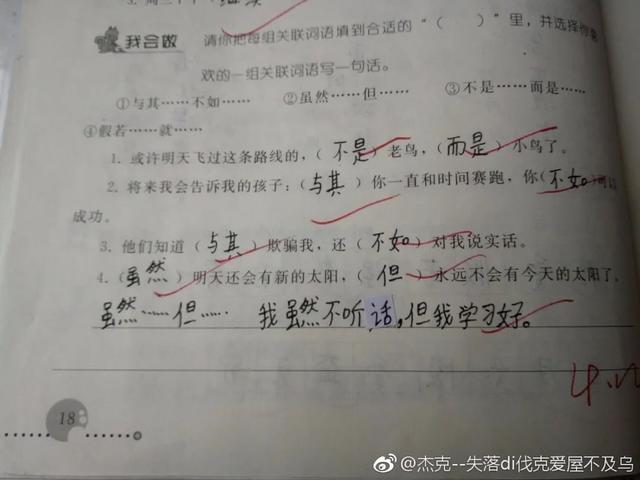 我会做 请你把每组关联词语填到合适的“（ ）”里，并选择你喜
欢的一组关联词语写一句话。
①与其……不如…… ②虽然……但…… ③不是……而是……
④假若……就……
1. 或许明天飞过这条路线的，（不是）老鸟，（而是）小鸟了。
2. 将来我会告诉我的孩子：（与其）你一直和时间赛跑，你（不如）可以
成功。
3. 他们知道（与其）欺骗我，还（不如）对我说实话。
4.（虽然）明天还会有新的太阳，（但）永远不会有今天的太阳了。
虽然……但…… 我虽然不听话，但我学习好。
18
@杰克--失落di伐克爱屋不及乌